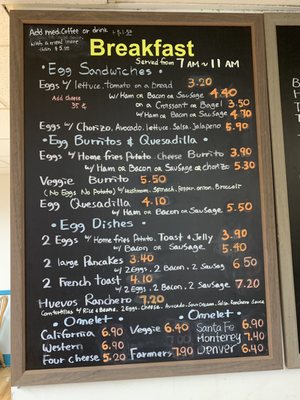 Add med. Coffee or drink + $1.50
with a meal
Breakfast
Served from 7 AM ~ 11 AM
• Egg Sandwiches •
Eggs w/ lettuce, tomato on a bread 3.20
Add cheese 35 ¢
w/ Ham or Bacon or Sausage 4.40
on a Croissant or Bagel 3.50
w/ Ham or Bacon or Sausage 4.70
Eggs w/ Chorizo, Avocado, lettuce, Salsa, Jalapeno 5.90
• Egg Burritos & Quesadilla •
Eggs w/ Home fries Potato, Cheese Burrito 3.90
w/ Ham or Bacon or Sausage or chorizo 5.30
Veggie Burrito 5.50
(No Eggs No Potato) w/ Mushroom, Spinach, Pepper, onion, Broccoli
Egg Quesadilla 4.10
w/ Ham or Bacon or Sausage 5.50
• Egg Dishes •
2 Eggs w/ Home fries Potato, Toast & Jelly 3.90
w/ Bacon or Sausage 5.40
2 large Pancakes 3.40
w/ 2 Eggs, 2 Bacon, 2 Sausag 6.50
2 French Toast 4.10
w/ 2 Eggs, 2 Bacon, 2 Sausage 7.20
Huevos Ranchero 7.20
Corn tortillas w/ Rice & Beans, 2 Eggs, Cheese, Avocado, Sour Cream, Salsa, Ranchero Sauce
• Omelet • • Omelet •
California 6.90 Veggie 6.40 Santa Fe 6.90
Western 6.90 7.00 Monterey 7.40
Four cheese 5.20 Farmers 7.90 Denver 6.40